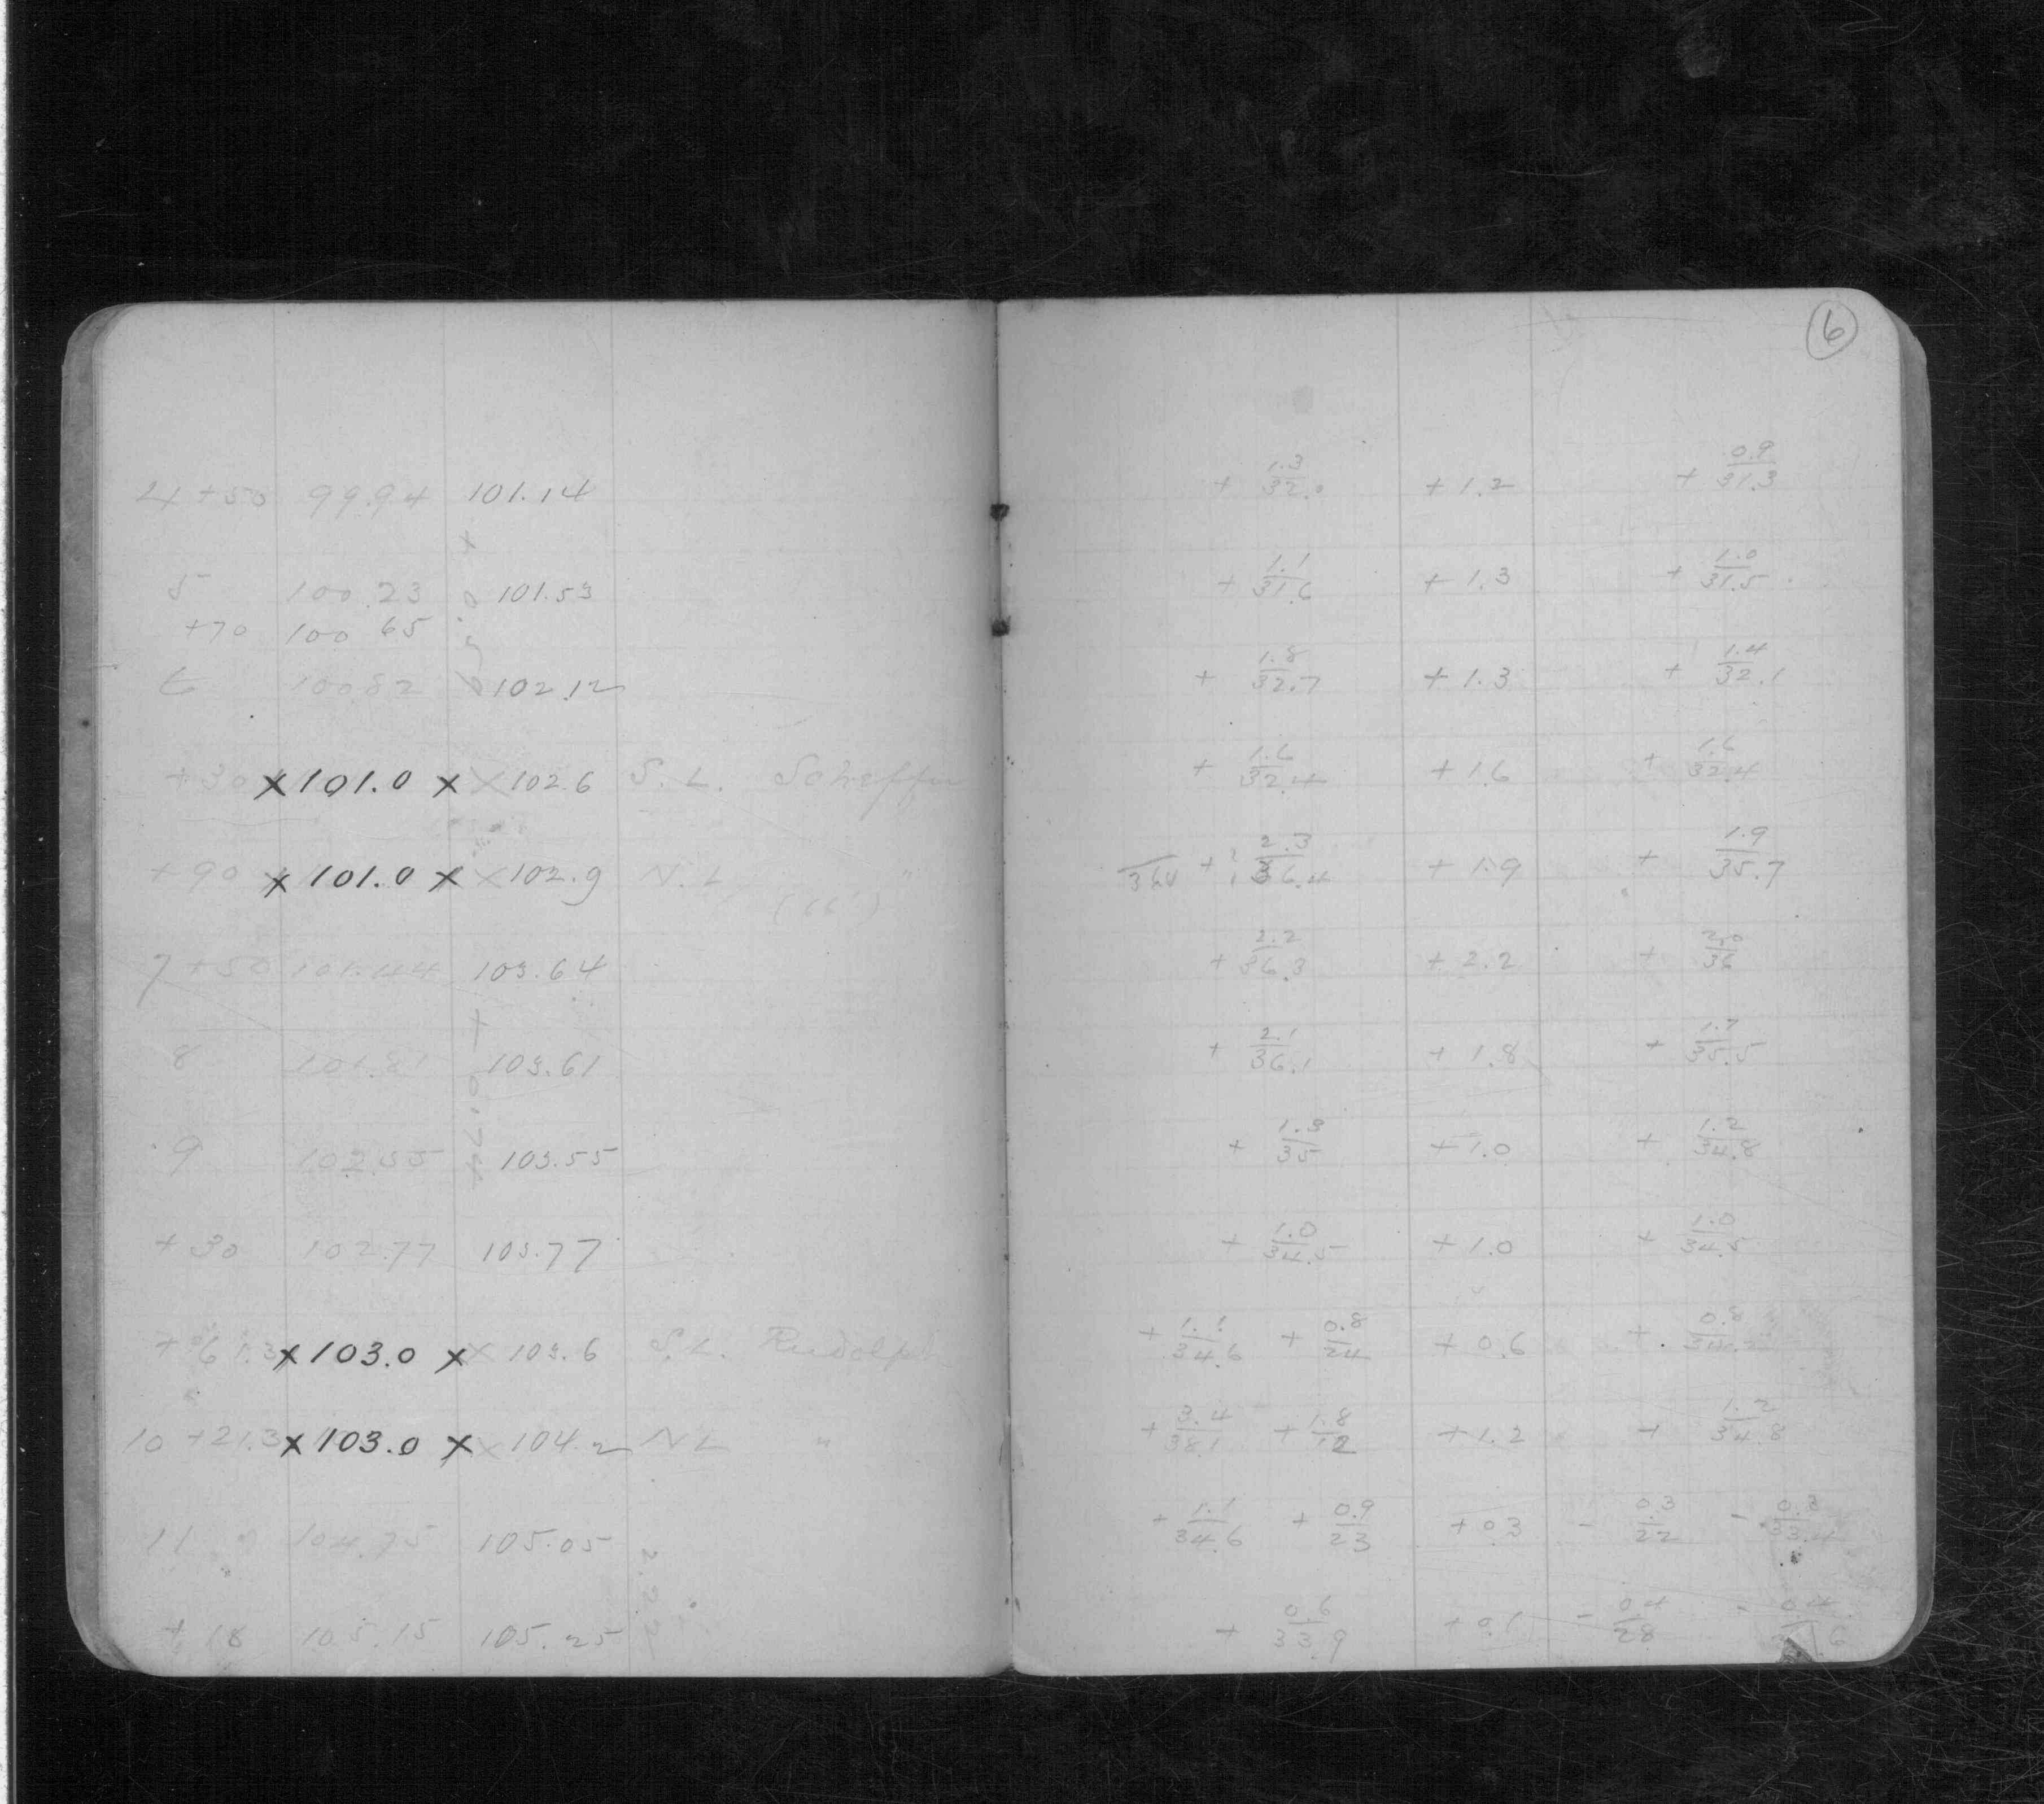 6
4 +50 99.94 101.14 + 1.3/32.0 + 1.2 + 0.9/31.3
5 100.23 101.53 + 1.1/31.6 + 1.3 + 1.0/31.5
+70 100 65
+ 0.59
6 100.82 102.12 + 1.8/32.7 + 1.3 + 1.4/32.1
+30 x 101.0 x x 102.6 S.L. + 1.6/32.4 + 1.6 + 1.6/32.4
+90 x 101.0 x x 102.9 N.L. " 36.4 + 2.3/36.4 + 1.9 + 1.9/35.7
(66')
7 +50 101.44 103.64 + 2.2/36.3 + 2.2 + 2.0/36
8 101.81 103.61 + 2.1/36.1 + 1.8 + 1.7/35.5
+ 0.74
9 102.55 103.55 + 1.3/35 + 1.0 + 1.2/34.8
+30 102.77 103.77 + 1.0/34.5 + 1.0 + 1.0/34.5
+61.3 x 103.0 x x 103.6 S.L. Rudolph + 1.1/34.6 + 0.8/24 + 0.6 + 0.8/34.2
10 +21.3 x 103.0 x x 104.2 N L " + 3.4/38.1 + 1.8/12 + 1.2 + 1.2/34.8
11 104.75 105.05 + 1.1/34.6 + 0.9/23 + 0.3 - 0.3/22 - 0.3/33.4
2.22
+ 18 105.15 105.25 + 0.6/33.9 + 0.1 - 0.4/28 - 0.4